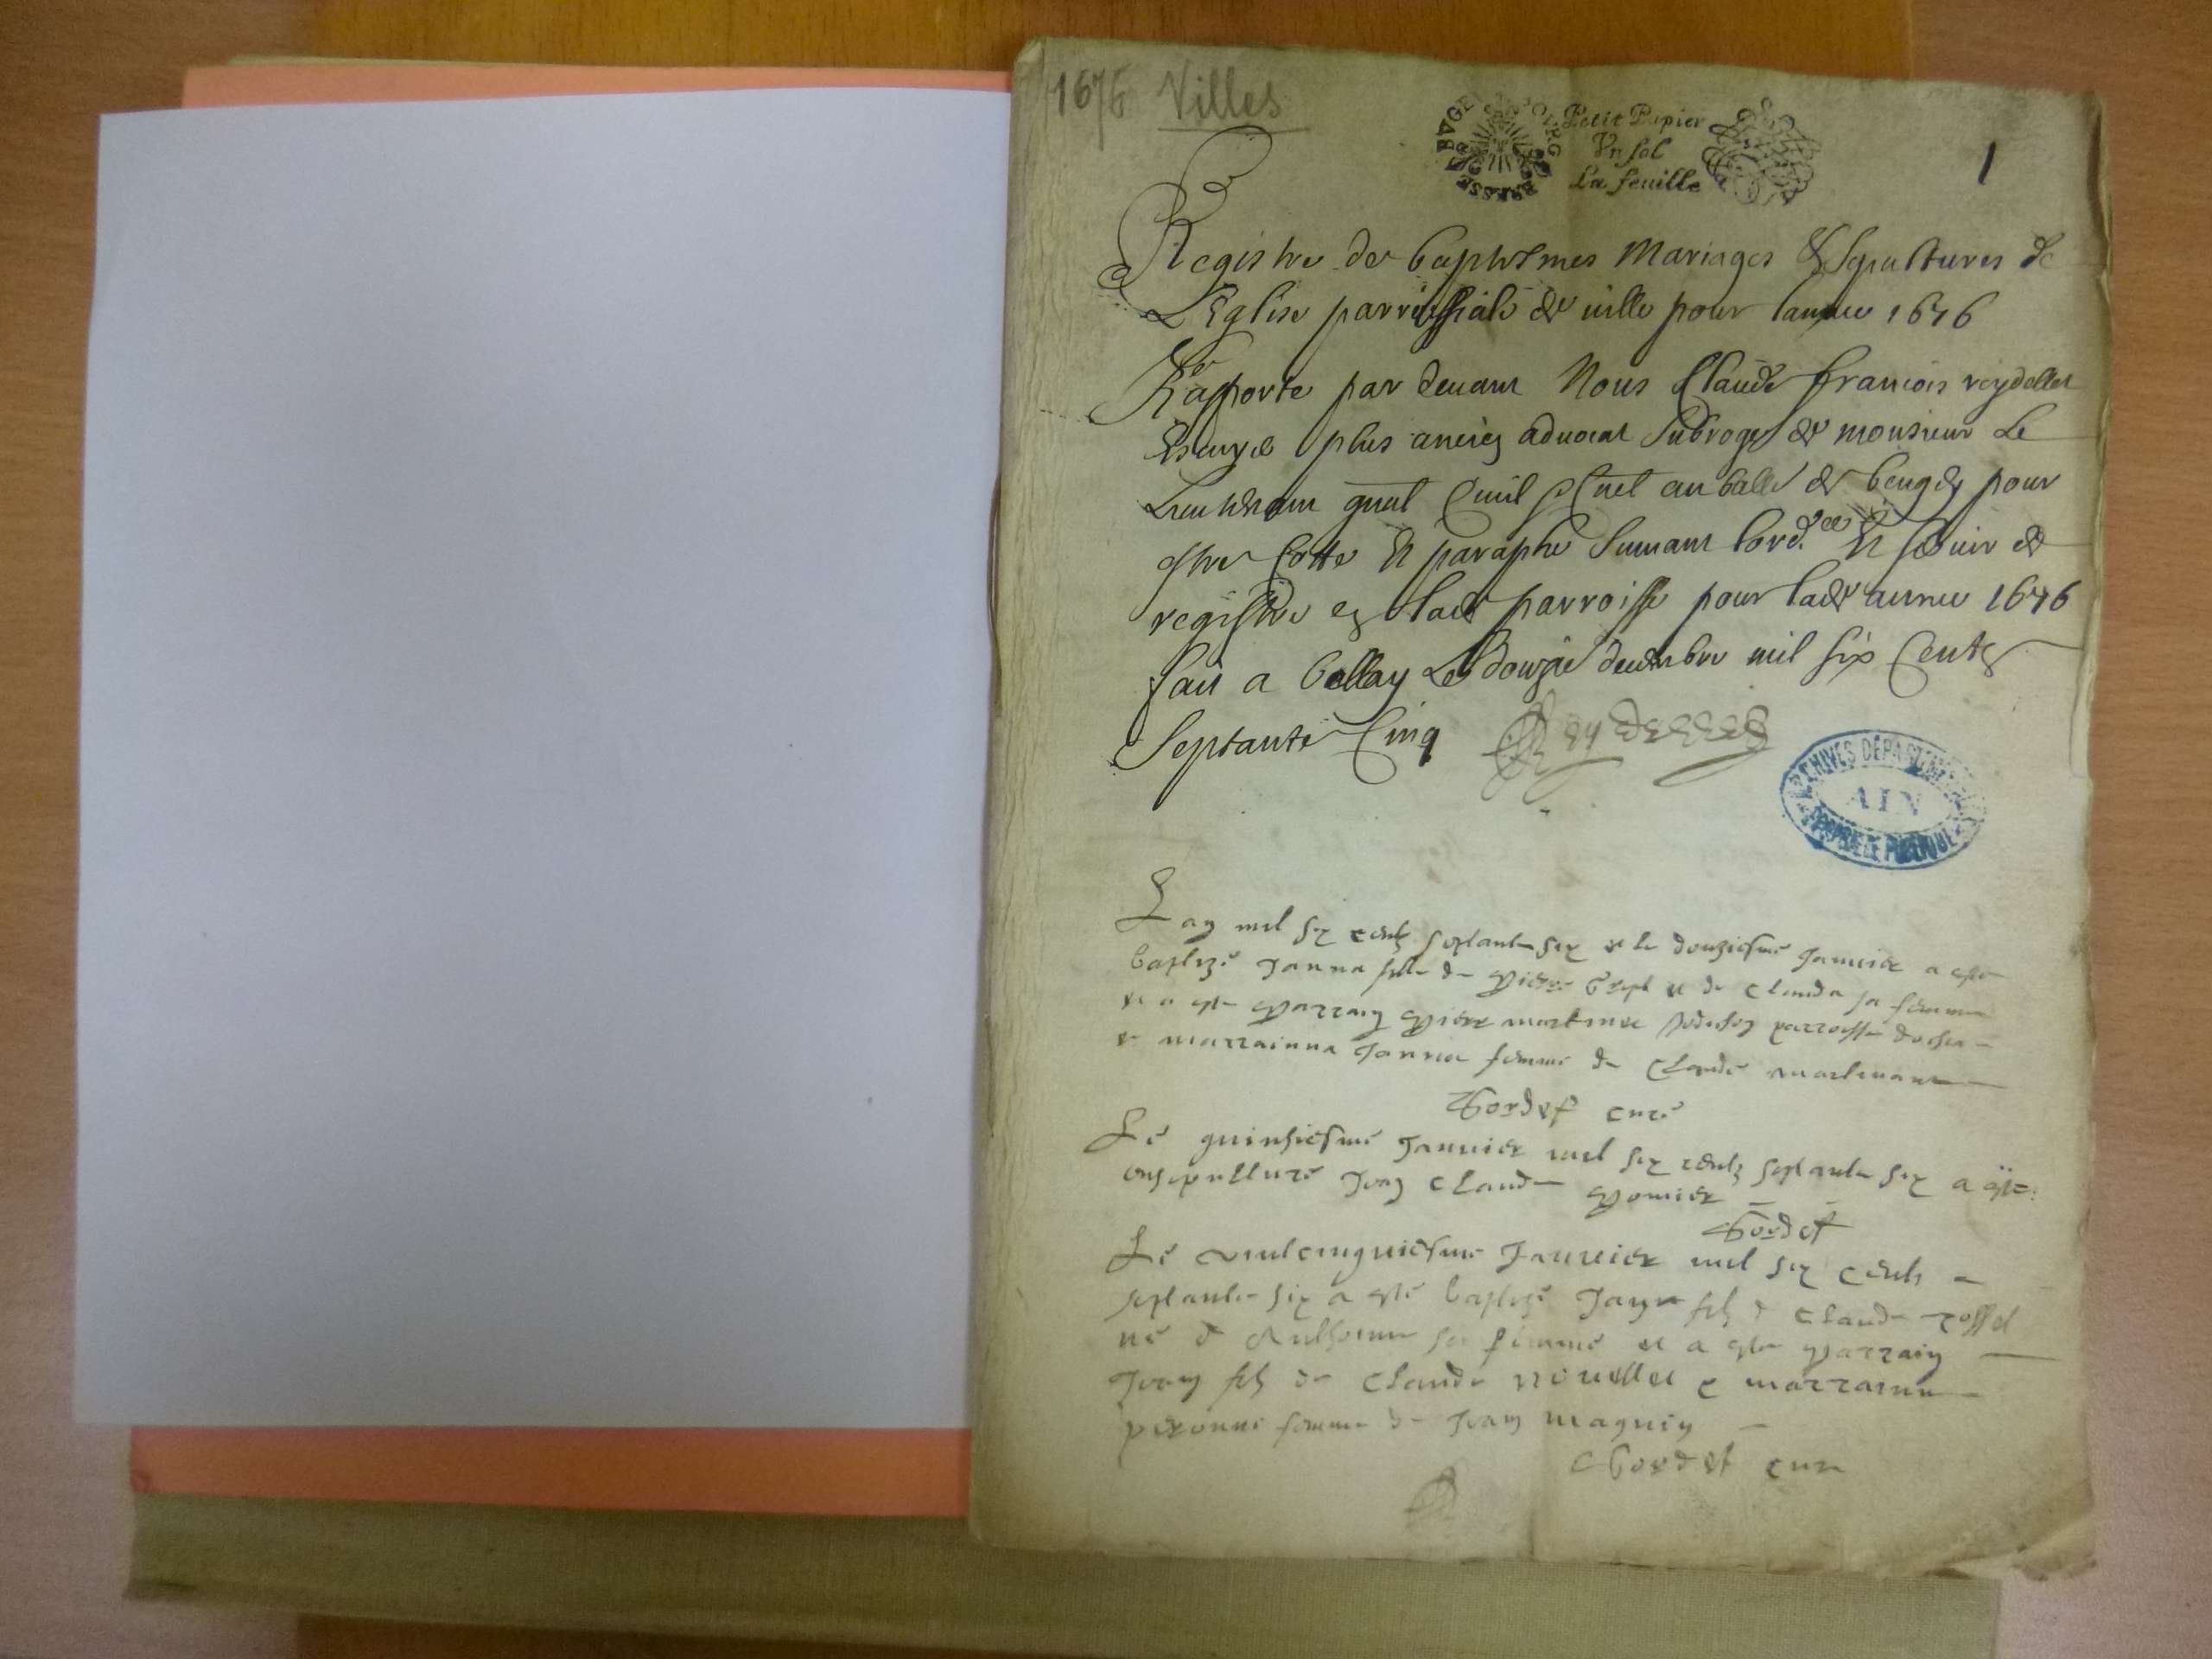 1676 Villes
Petit Papier
Vn sol
La feuille
1
Registre de baptesmes Mariages & Sepultures de
L'Eglise parrossiale de ville pour lannee 1676
Raporté par deuant Nous Claude francois reydellet
Escuyer plus ancien aduocat Subrogé de monsieur Le
Lieutenant gnal Ciuil au balle de beugey pour
estre Cotte Et paraphe Suiuant lord.ce Et seruir de
registre en lade parroisse pour lade annee 1676
fait a bellay Le douzie decembre mil six Cents
Septante Cinq Reydellet
ARCHIVES DEPARTEMENTALES
AIN
PROPRIETE PUBLIQUE
Lan mil six centz septante six et le douziesme Januier a esté
baptizé Janna fille de Pierre et de Clauda sa femme
et a este parrain Pierre parroisse
et marrainna Janna femme de Claude
Bordet curé
Le quinsiesme Januier mil six centz septante six a este
ensepulturé Jean Claude Pomier
Bordet
Le vintcinquiesme Januier mil six centz
septante six a esté baptizé fils de Claude rossel
sa femme et a este parrain
Jean filz de Claude niuellet e marrainne
peronne femme de Jean magnin
Bordet cure